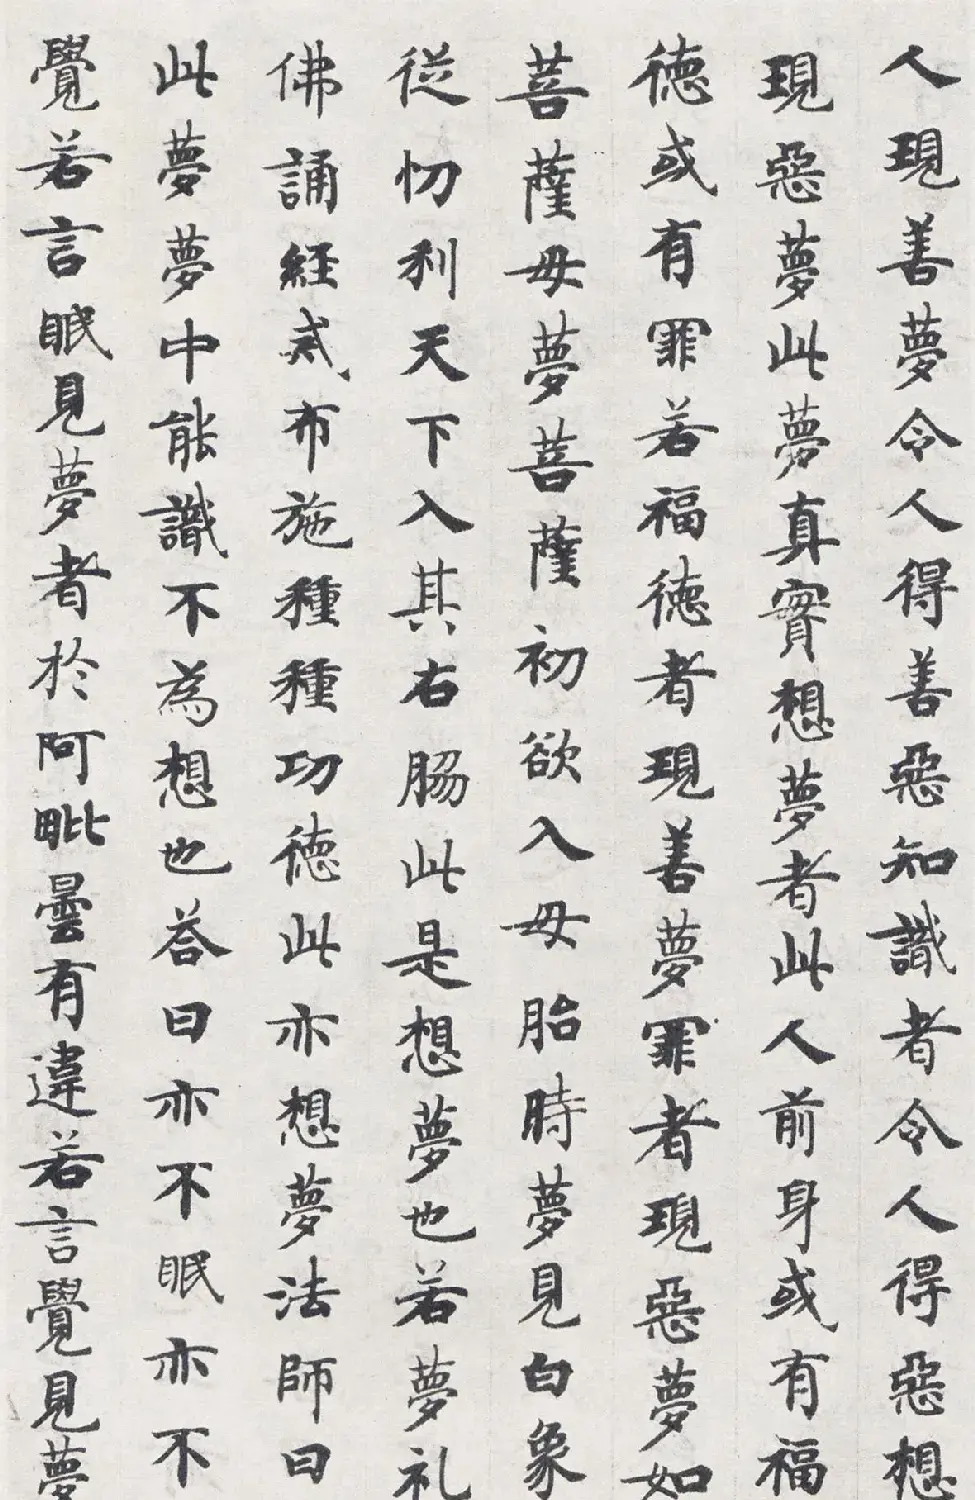 人現善夢令人得善惡知識者令人得惡想
現惡夢此夢真實想夢者此人前身或有福
德或有罪若福德者現善夢罪者現惡夢如
菩薩母夢菩薩初欲入母胎時夢見白象
從忉利天下入其右脇此是想夢也若夢礼
佛誦經或布施種種功德此亦想夢法師曰
此夢夢中能識不為想也答曰亦不眠亦不
覺若言眠見夢者於阿毗曇有違若言覺見夢